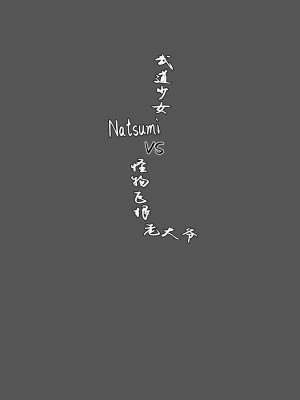 武道少女
Natsumi
VS
怪物巨根
老大爷